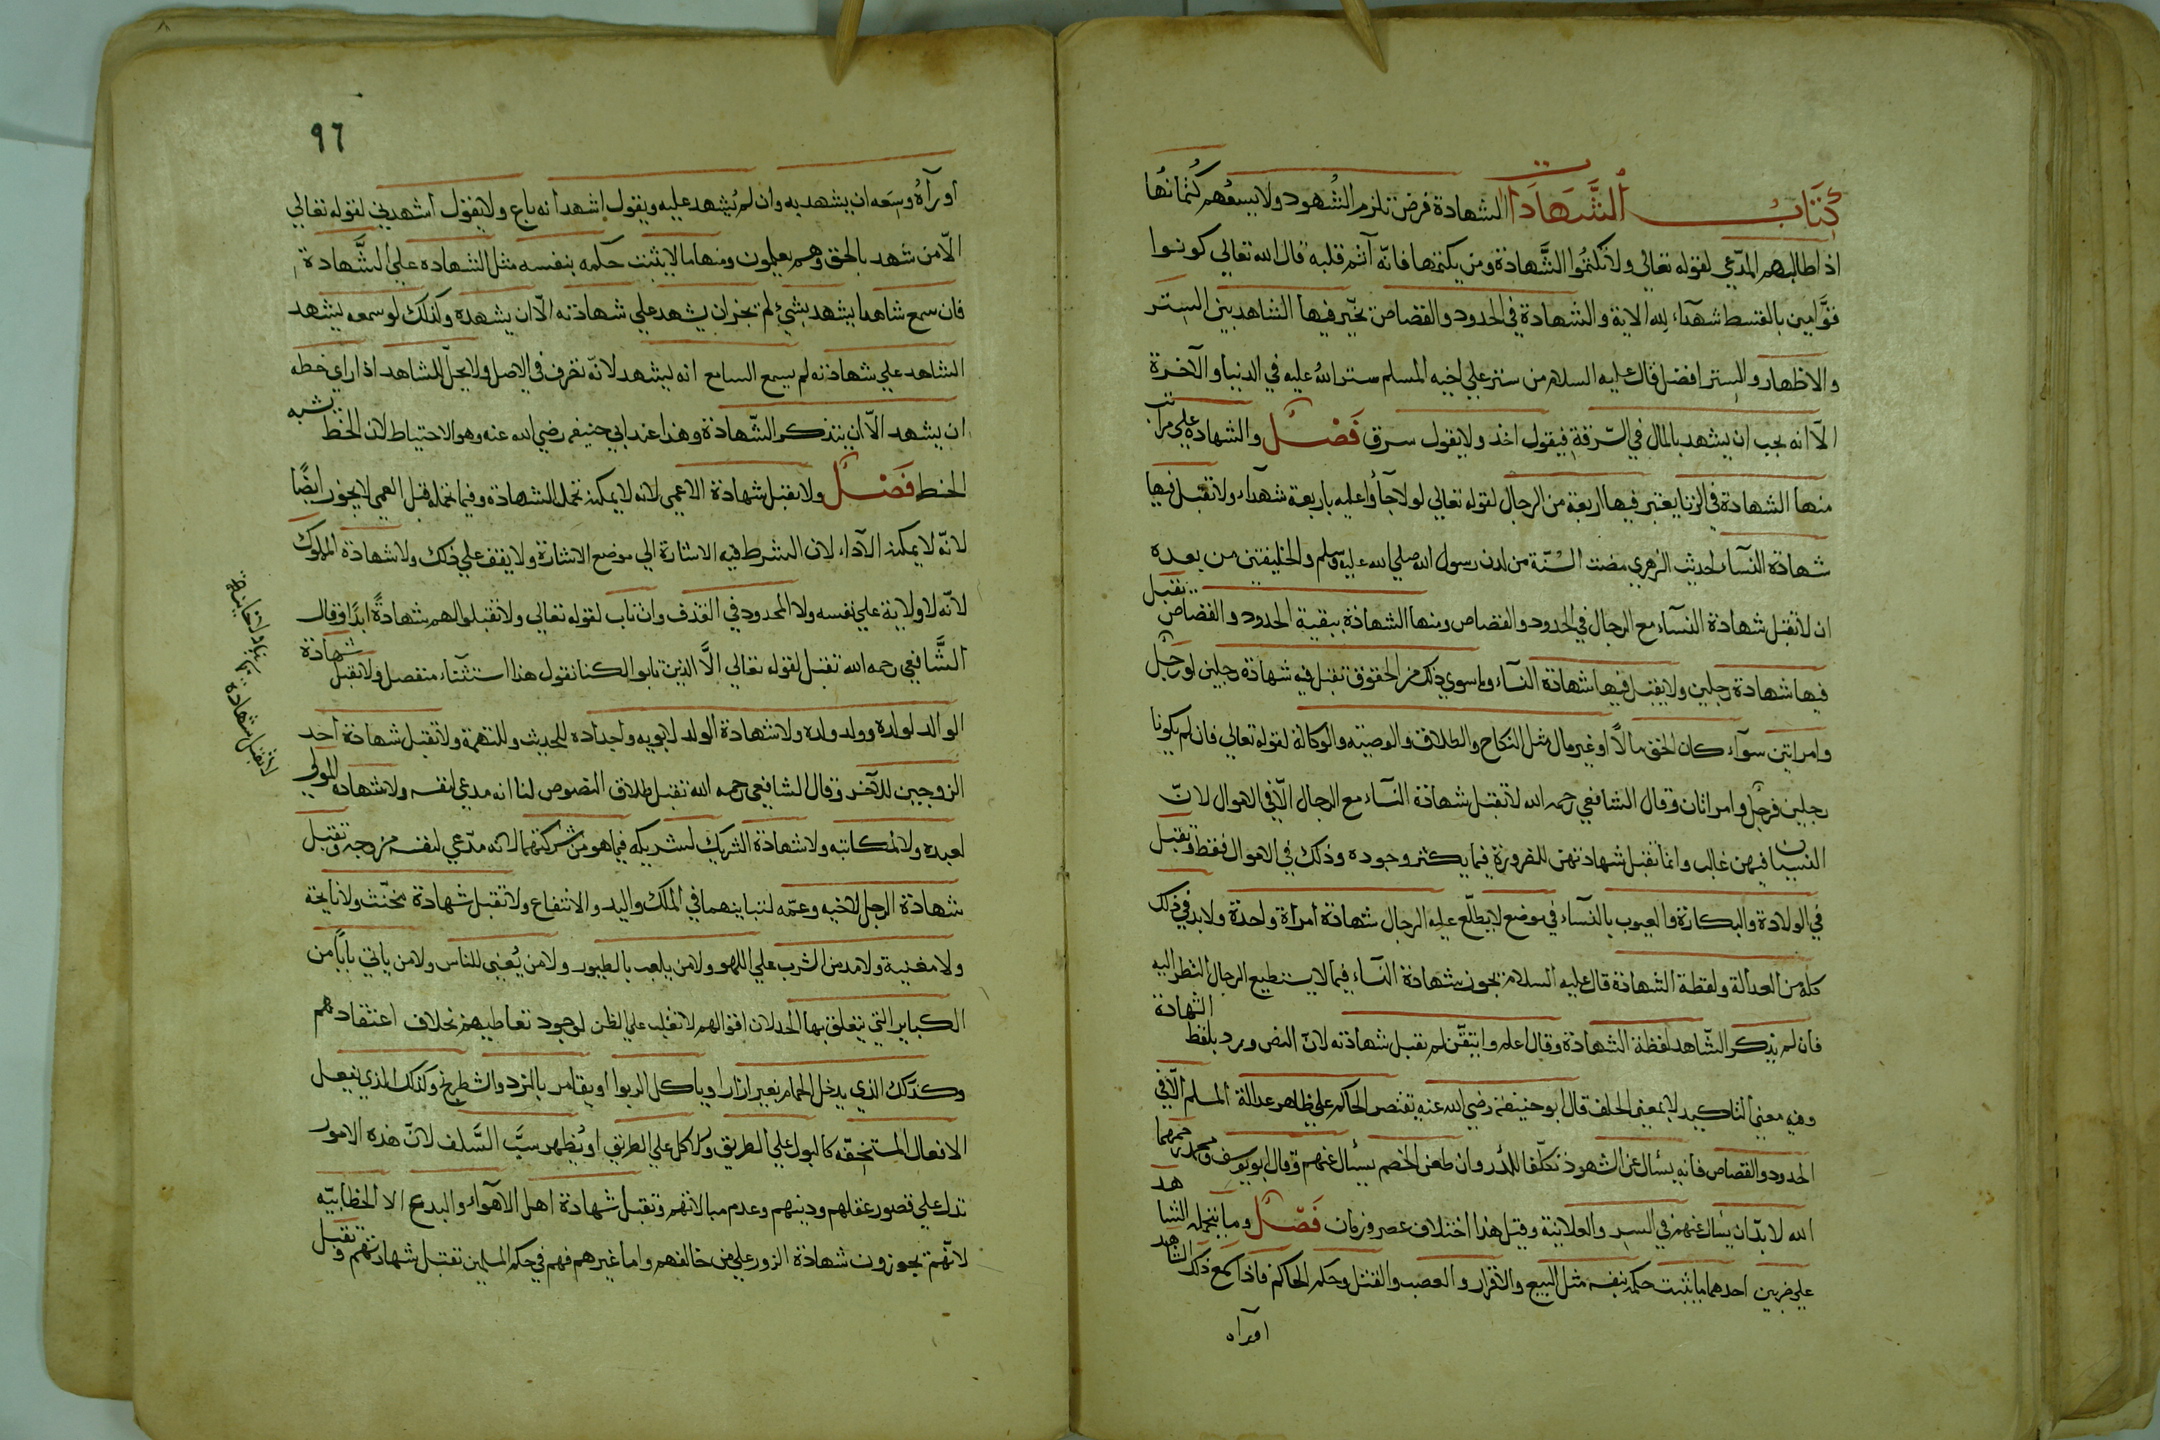 كتاب الشهادات الشهادة فرض تلزم الشهود ولا يسعهم كتمانها
اذا طالبهم المدّعي لقوله تعالي ولا تكتموا الشَّهادة ومن يكتمها فانّه آثم قلبه قال الله تعالي كونوا
قوَّامين بالقسط شهدآء لله الاية والشهادة في الحدود والقصاص يخيّر فيها الشاهد بين الستر
والاظهار والستر افضل قال عليه السلام من ستر علي اخيه المسلم ستر الله عليه في الدنيا والآخرة
الّا انه يجب ان يشهد بالمال في السّرقة فيقول اخذ ولا يقول سرق فَصْلٌ والشهادة علي مراتب
منها الشهادة في الزنا يعتبر فيها اربعة من الرجال لقوله تعالي لولا جآؤا عليه باربعة شهدآء ولا تقبل فيها
شهادة النسآء لحديث الزهري مضت السُنّة من لدن رسول الله صلي الله عليه وسلم والخليفتين من بعده
ان لا تقبل شهادة النسآء مع الرجال في الحدود والقصاص ومنها الشهادة ببقية الحدود والقصاص تقبل
فيها شهادة رجلين ولا يقبل فيها شهادة النسآء وما سوي ذلك من الحقوق تقبل فيه شهادة رجلين او رجل
وامراتين سوآء كان الحق مالًا او غير مال مثل النكاح والطلاق والوصيّه والوكالة لقوله تعالي فان لم يكونا
رجلين فرجل وامراتان وقال الشافعي رحمه الله لا تقبل شهادة النسآء مع الرجال الّا في الاموال لانّ
النسيان فيهن غالب وانما تقبل شهادتهن للضرورة فيما يكثر وجوده وذلك في الاموال فقط وتقبل
في الولادة والبكارة والعيوب بالنسآء في موضع لا يطّلع عليه الرجال شهادة امراة واحدة ولا بد في ذلك
كله من العدالة ولفظة الشهادة قال عليه السلام تجوز شهادة النسآء فيما لا يستطيع الرجال النظر اليه
فان لم يذكر الشّاهد لفظة الشهادة وقال اعلم واتيقّن لم تقبل شهادته لانّ النص ورد بلفظ الشهادة
وفيه معني التاكيد لا بمعني الحلف قال ابو حنيفة رضي الله عنه يقتصر الحاكم علي ظاهر عدالة المسلم الّا في
الحدود والقصاص فانه يسأل عن الشهود تكلّفا للدّرء وان طعن الخصم يسأل عنهم وقال ابو يوسف ومحمد رحمهما
الله لا بدّ ان يسال عنهم في السر والعلانية وقيل هذا اختلاف عصر وزمان فَصْلٌ وما يتحمله الشاهد
علي ضربين احدهما ما يثبت حكمه بنفسه مثل البيع والاقرار والغصب والقتل وحكم الحاكم فاذا سمع ذلك الشاهد
او رآه
٩٦
او رآهُ وسِعَه ان يشهد به وان لم يُشهد عليه ويقول اشهد أنه باع ولا يقول أشهدني لقوله تعالي
الّا من شهد بالحق وهم يعلمون ومنها ما لا يثبت حكمه بنفسه مثل الشهاده علي الشَّهادة
فان سمع شاهدا يشهد بشيءٍ لم يجز ان يشهد علي شهادته الّا ان يشهده وكذلك لو سمعه يشهد
الشاهد علي شهادته لم يسع السامع انه يشهد لانّه تصرف في الاصل ولا يحلّ للشاهد اذا راي خطه
ان يشهد الّا ان يتذكر الشّهادة وهذا عند ابي حنيفه رضي الله عنه وهو الاحتياط لان الخط يشبه
الخط فَصْلٌ ولا تقبل شهادة الاعمي لانه لا يمكنه تحمل الشهادة وفيما تحمله قبل العمي لا يجوز ايضًا
لانّه لا يمكنه الآداء لان الشرط فيه الاشارة الي موضع الاشارة ولا يقف علي ذلك ولا شهادة المملوك
لانّه لا ولاية علي نفسه ولا المحدود في القذف وان تاب لقوله تعالي ولا تقبلوا لهم شهادةً ابدًا وقال
الشَّافعي رحمه الله تقبل لقوله تعالي الَّا الذين تابوا لكنا نقول هذا استثنآء منفصل ولا تقبل شهادة
الوالد لولده وولد ولده ولا شهادة الولد لابويه واجداده للحديث وللتهمة ولا تقبل شهادة احد
الزوجين للآخر وقال الشافعي رحمه الله تقبل لاطلاق النصوص لنا انه مدعي لنفسه ولا شهادة المولي
لعبده ولا لمكاتبه ولا شهادة الشريك لشريكه فيما هو من شركتهما لانه مدّعي لنفسه من وجه وتقبل
شهادة الرجل لاخيه وعمّه لتباينهما في الملك واليد والانتفاع ولا تقبل شهادة مخنّث ولا نايحة
ولا مغنية ولا مدمن الشرب علي اللهو ولا من يلعب بالطيور ولا من يُغني للناس ولا من ياتي بابًا من
الكباير التي يتعلق بها الحد لان اقوالهم لا تغلب علي الظن لوجود تعاطيهم بخلاف اعتقادهم
وكذلك الذي يدخل الحمام بغير ازار او ياكل الربوا او يقامر بالنرد والشطرنج وكذلك الذي يفعل
الافعال المستخفّه كالبول علي الطريق والاكل علي الطريق او يُظهر سبَّ السَّلف لانّ هذه الامور
تدل علي قصور عقلهم ودينهم وعدم مبالاتهم وتقبل شهادة اهل الاهوآء والبدع الا الخطابيّه
لانّهم يجوزون شهادة الزور علي من خالفهم واما غيرهم فهم في حكم المسلمين تقبل شهادتهم وتقبل
لا تقبل شهادة